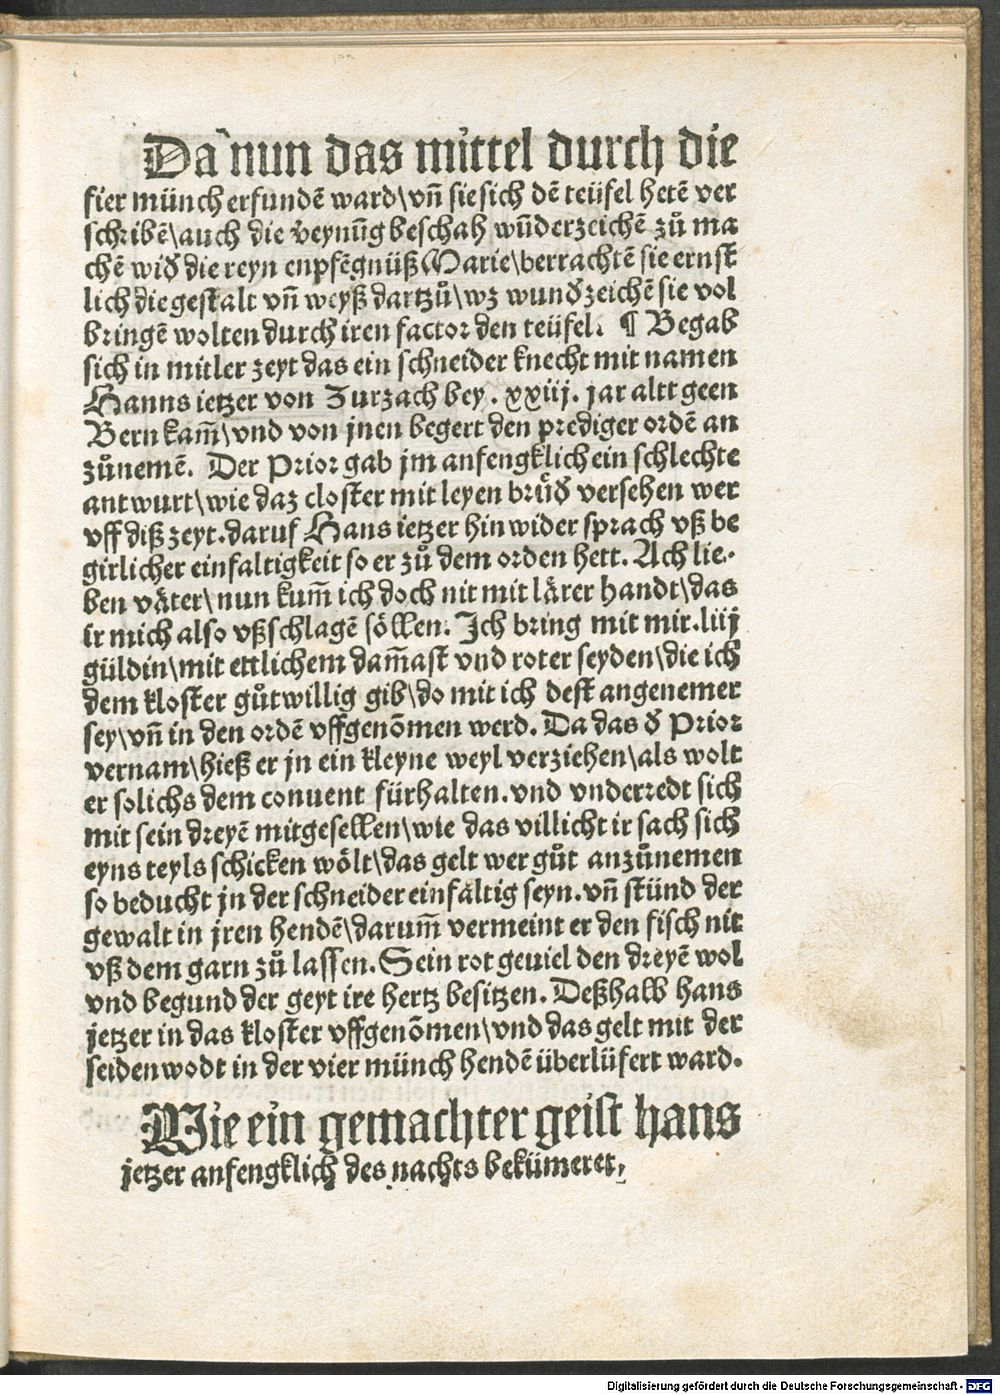 Da nun das mittel durch die
fier münch erfundē ward\vñ sie sich dē teüfel hetē ver
schribē\auch die v̈eynūg beschah wūderzeichē zů ma
chē wiđ die reyn enpfēgnüß Marie\betrachtē sie ernst
lich die gestalt vñ weyß dartzů\wz wunđzeichē sie vol
bringē wolten durch iren factor den teüfel. ¶ Begab
sich in mitler zeyt das ein schneider knecht mit namen
Hanns ietzer von Zurzach bey . xxiij. jar altt geen
Bern kam̄\vnd von jnen begert den prediger ordē an
zůnemē. Der Prior gab jm anfengklich ein schlechte
antwurt\wie daz closter mit leyen brůđ versehen wer
vff diß zeyt. daruf Hans ietzer hin wider sprach vß be
girlicher einfaltigkeit so er zů dem orden hett. Ach lie-
ben väter\nun kum̄ ich doch nit mit lärer handt\das
ir mich also vßschlagē söllen. Ich bring mit mir. liij
güldin\mit ettlichem dam̄ast vnd roter seyden\die ich
dem kloster gůtwillig gib\do mit ich dest angenemer
sey\vñ in den ordē vffgenōmen werd. Da das đ Prior
vernam\hieß er jn ein kleyne weyl verziehen\als wolt
er solichs dem conuent fürhalten. vnd vnderredt sich
mit sein dreyē mitgesellen\wie das villicht ir sach sich
eyns teyls schicken wölt\das gelt wer gůt anzůnemen
so beducht jn der schneider einfältig seyn. vñ stünd der
gewalt in jren hendē\darum̄ vermeint er den fisch nit
vß dem garn zů lassen. Sein rot geuiel den dreyē wol
vnd begund der geyt ire hertz besitzen. Deßhalb hans
jetzer in das kloster vffgenōmen\vnd das gelt mit der
seidenwodt in der vier münch hendē überlüfert ward.
Wie ein gemachter geist hans
jetzer anfengklich des nachts bekümeret.
Digitalisierung gefördert durch die Deutsche Forschungsgemeinschaft - DFG